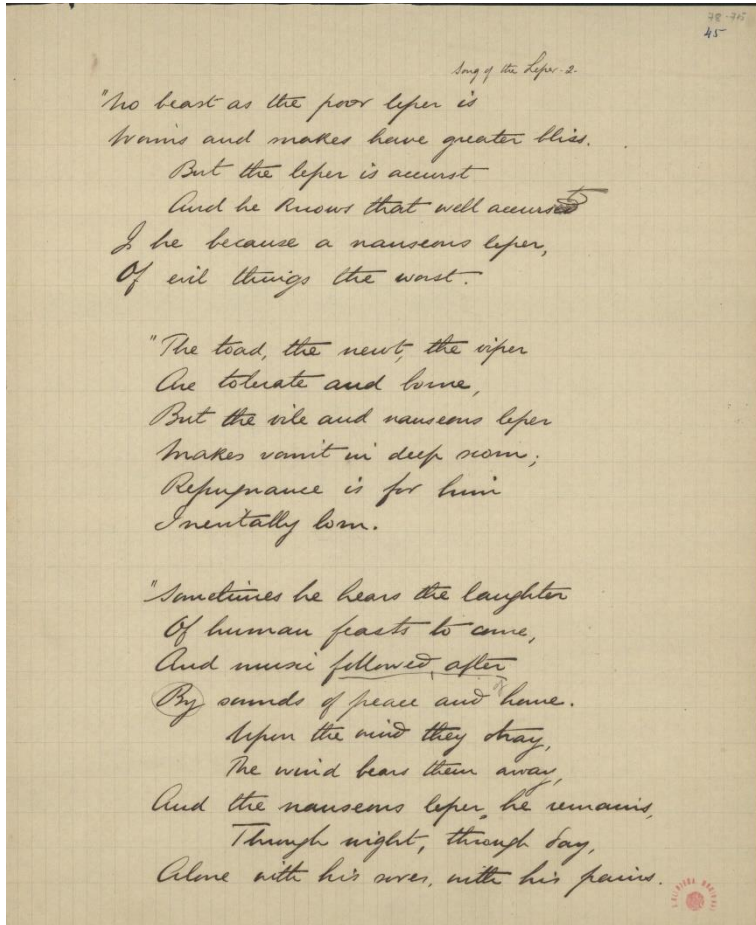 78-715
45
Song of the Leper - 2.
"No beast as the poor leper is
Worms and snakes have greater bliss.
But the leper is accurst
And he knows that well accurst
Is he because a nauseous leper,
Of evil things the worst.
"The toad, the newt, the viper
Are tolerate and borne,
But the vile and nauseous leper
Makes vomit in deep scorn;
Repugnance is for him
Inevitally born.
"Sometimes he hears the laughter
Of human feasts to come,
And music followed after
By sounds of peace and home.
Upon the wind they stray,
The wind bears them away,
And the nauseous leper, he remains,
Through night, through day,
Alone with his sores, with his pains.